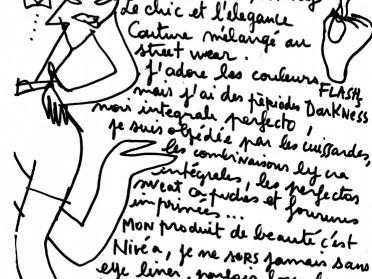 Le chic et l'elegance
Couture mélangé au
street wear.
J'adore les couleurs FLASHS
mais j'ai des périodes DarkNESS
noir integrale perfecto !
je suis obsédée par les cuissardes,
les combinaisons lycra
intégrales, les perfectos
sweat capuches et fourrures
imprimées...
MON produit de beauté c'est
Nivéa, je ne sors jamais sans
eye liner,